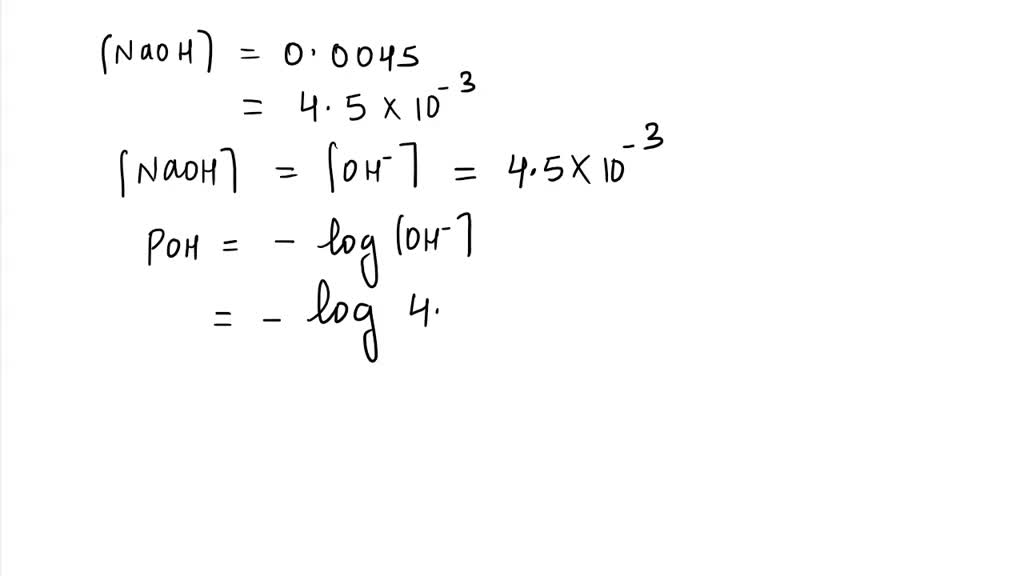 [NaOH] = 0.0045
= 4.5 × 10⁻³
[NaOH] = [OH⁻] = 4.5 × 10⁻³
POH = - log [OH⁻]
= - log 4.